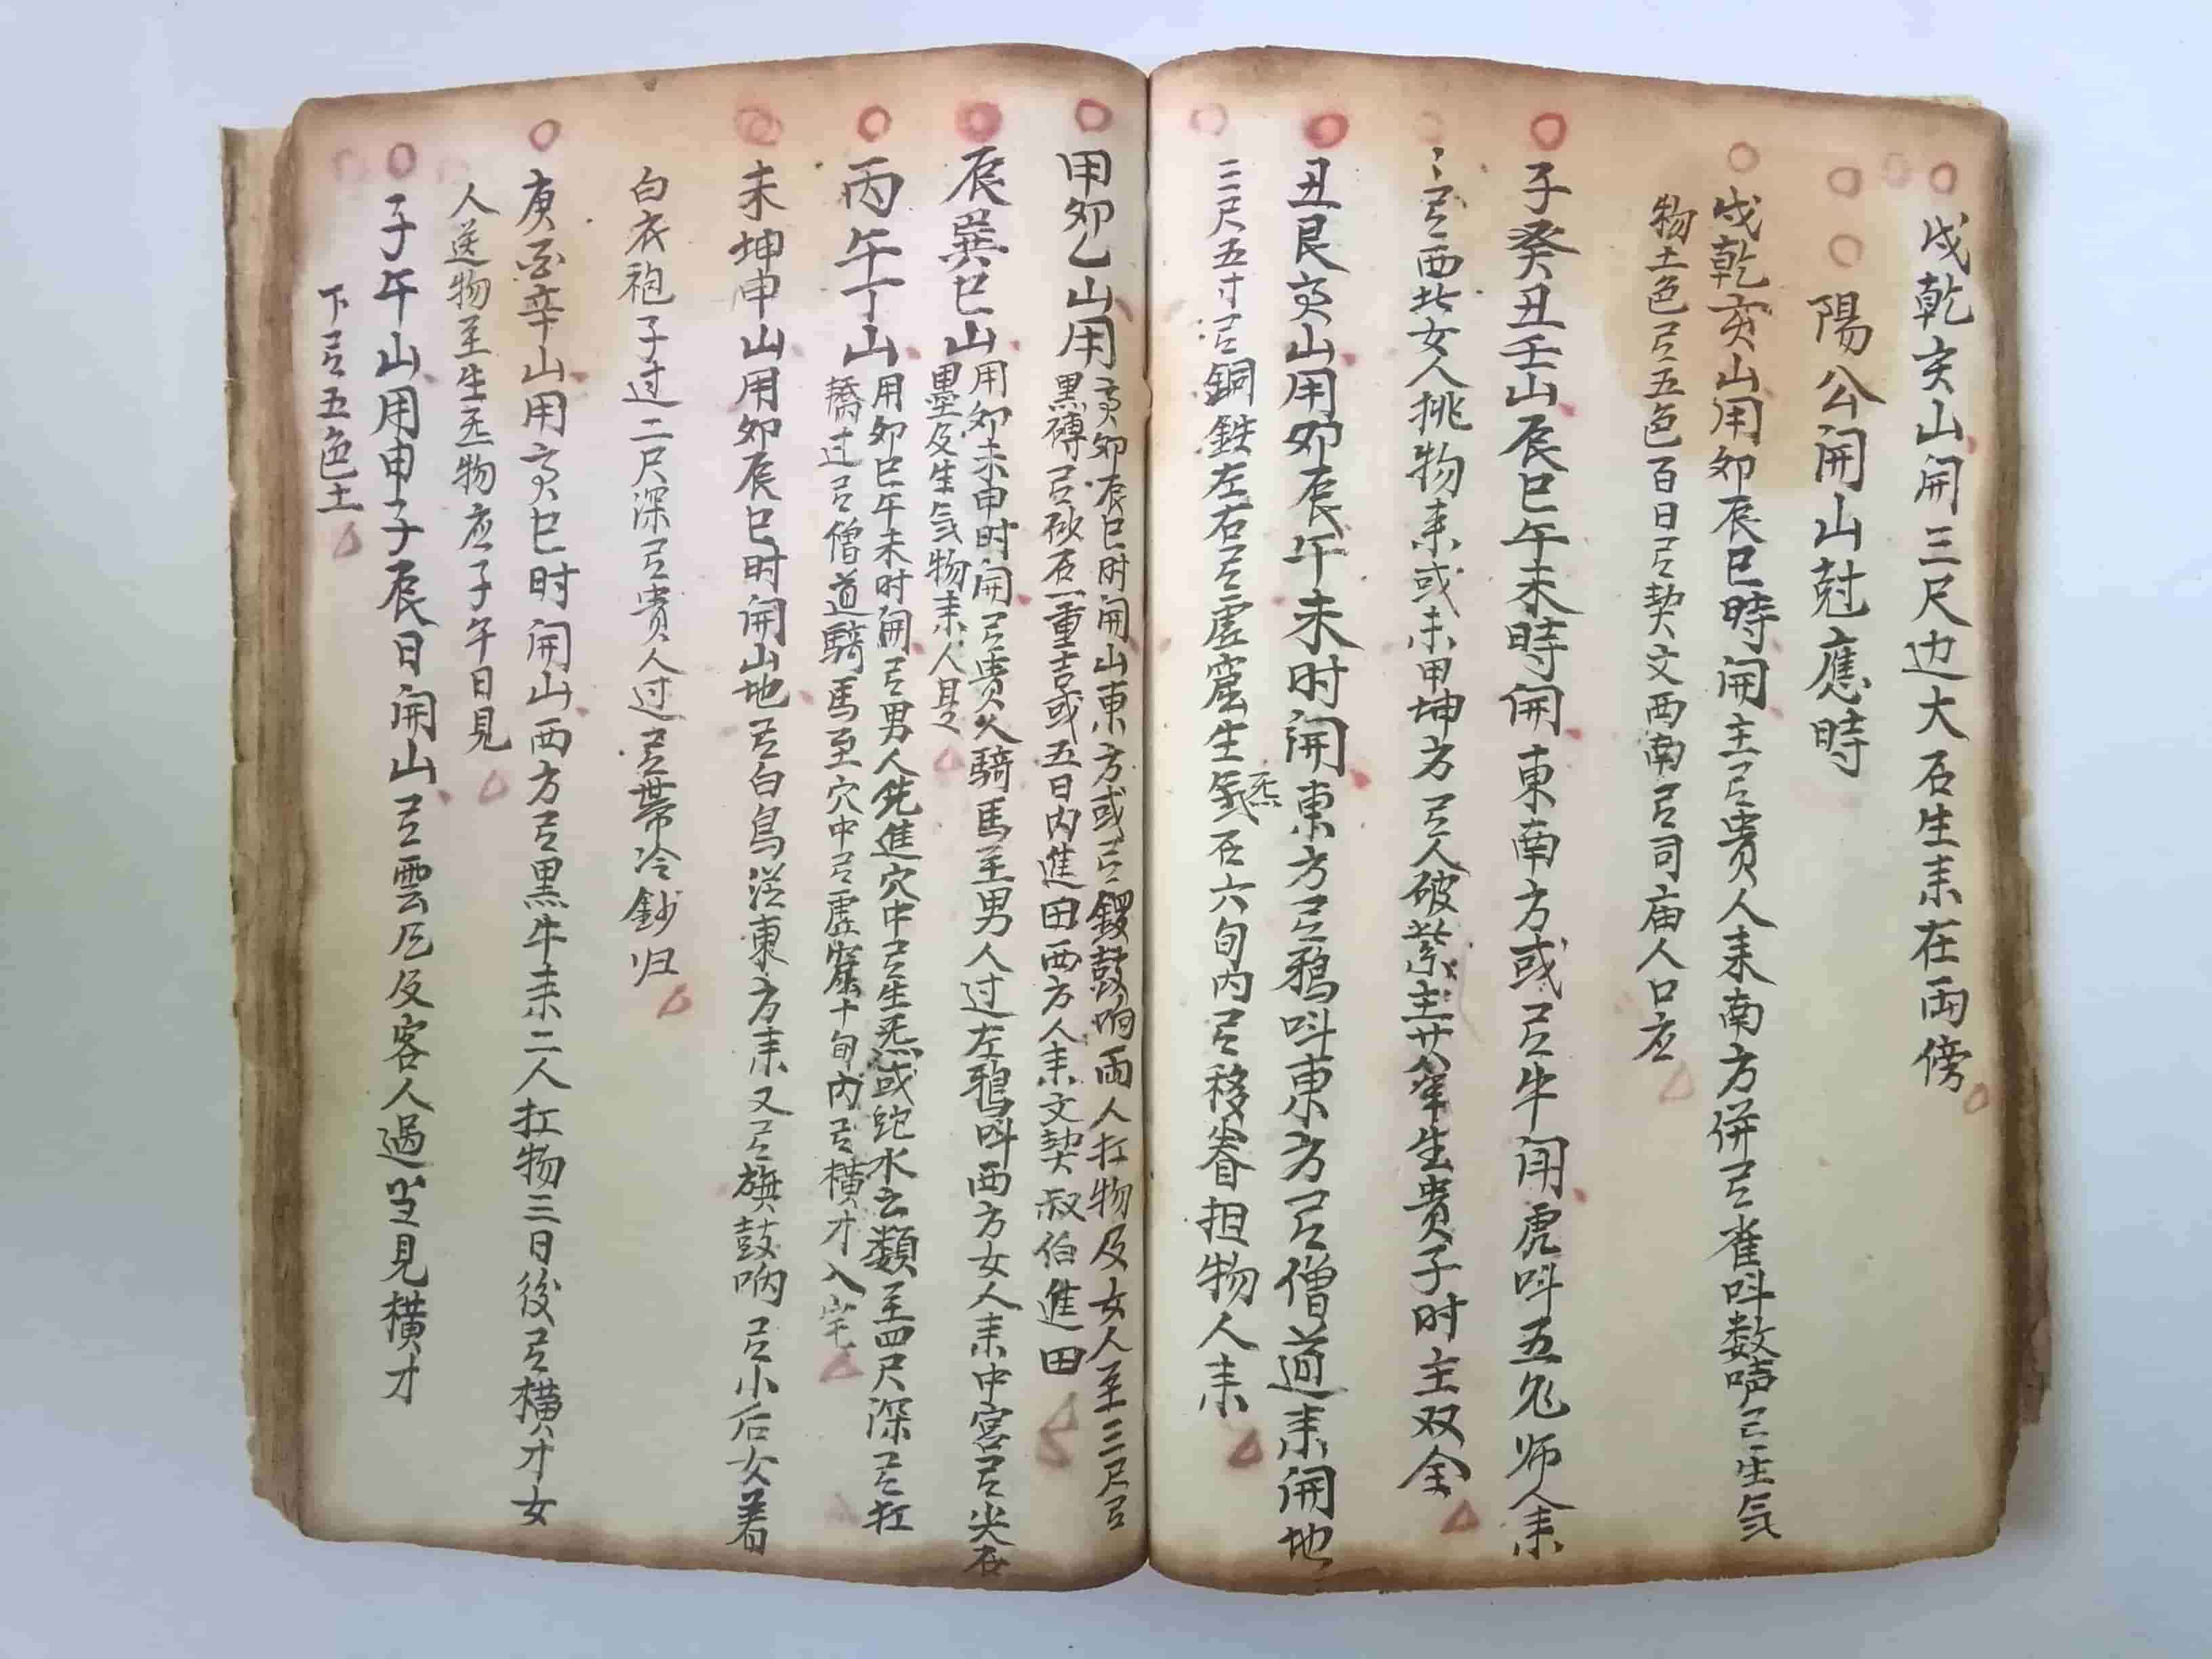 戌乾亥山開三尺边大石生耒在两傍
陽公開山尅應時
戌乾亥山用卯辰巳時開主㠯貴人耒南方併㠯雀呌数声㠯生氣
物土色㠯五色百日㠯契文西南㠯司庙人口应
子癸丑壬山辰巳午未時開東南方或㠯牛闭虎呌五鬼师人耒
㠯西北女人挑物耒或未甲坤方㠯人破業主廿八年生貴子时主双全
丑艮亥山用卯辰午未时開東方㠯鴉呌東方㠯僧道耒開地
二尺五寸㠯銅鉄左右㠯虚窟生氣石六旬内㠯移眷担物人耒
甲卯乙山用亥卯辰巳时開山東方或㠯鑼鼓响两人扛物及女人至三尺㠯
黑磚㠯砂石一重吉或五日内進田西方人耒文契叔伯進田
辰巽巳山用卯未申时開㠯貴人騎馬至男人过左鴉呌西方女人耒中宮㠯尖石
墨及生氣物耒人是
丙午丁山用卯巳午未时開㠯男人先進穴中㠯生炁或蛇水云類至四尺深㠯扛
轎过㠯僧道騎馬至穴中㠯虚窟十旬内㠯橫才入宅
未坤申山用卯辰巳时開山地㠯白鳥從東方耒又㠯旗鼓响㠯小后女着
白衣袍子过二尺深㠯貴人过㠯帶冷鈔归
庚酉辛山用亥巳时開山西方㠯黑牛耒二人扛物三日後㠯橫才女
人送物至生炁物应子午日見
子午山用申子辰日開山㠯雲厄及客人過坐見橫才
下㠯五色土